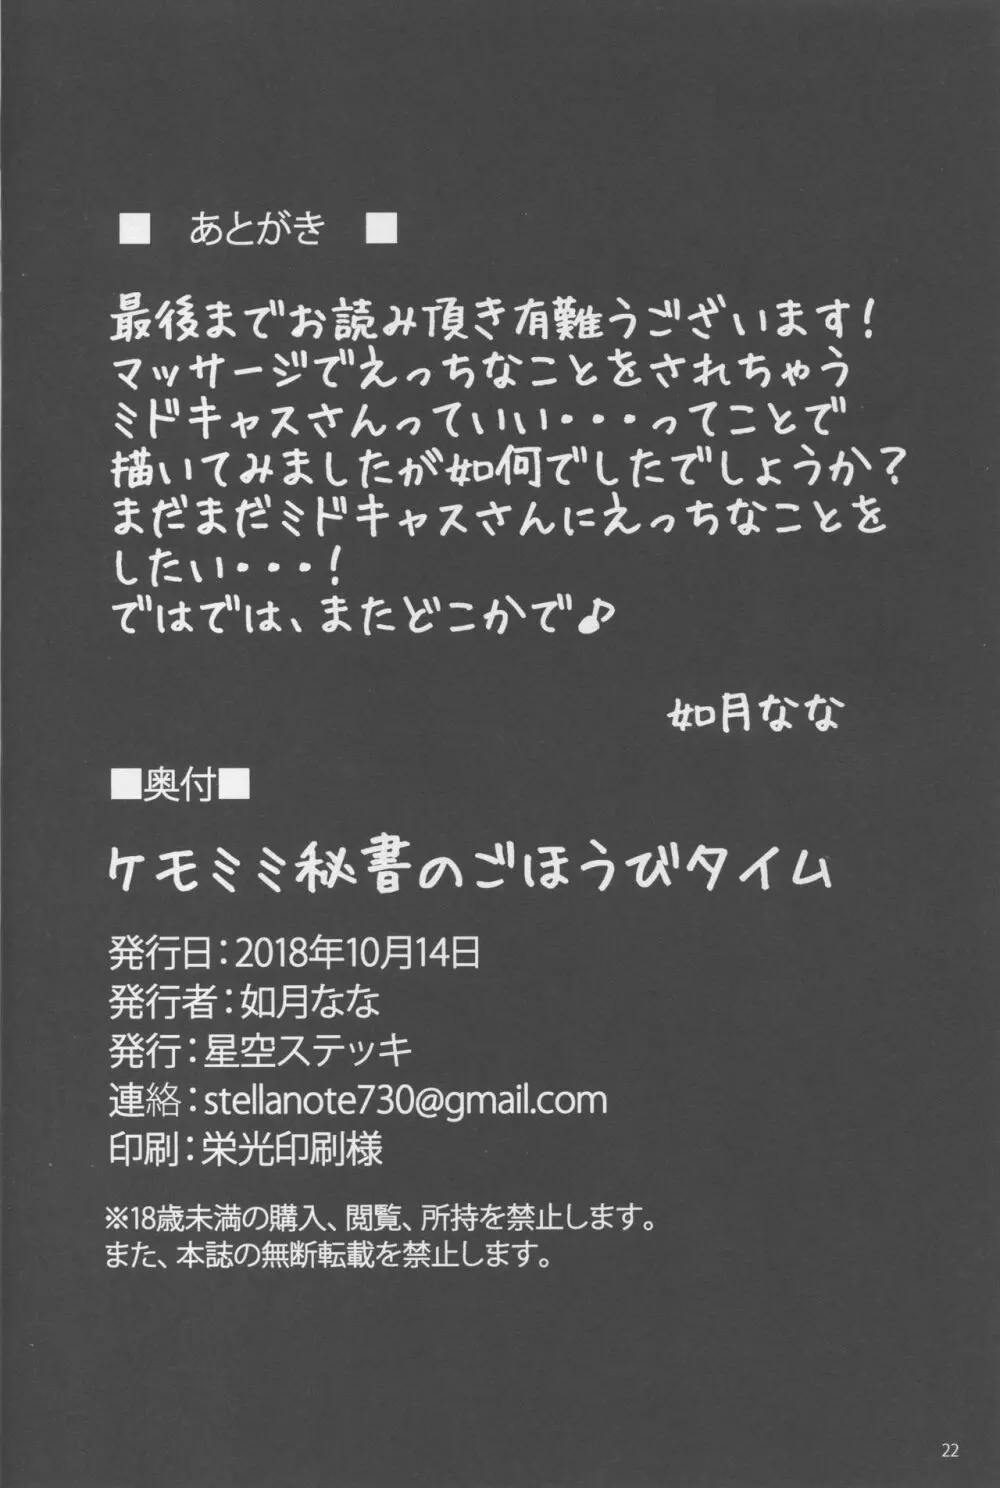 ■ あとがき ■
最後までお読み頂き有難うございます!
マッサージでえっちなことをされちゃう
ミドキャスさんっていい・・・ってことで
描いてみましたが如何でしたでしょうか?
まだまだミドキャスさんにえっちなことを
したい・・・!
ではでは、またどこかで♪
如月なな
■奥付■
ケモミミ秘書のごほうびタイム
発行日：2018年10月14日
発行者：如月なな
発行：星空ステッキ
連絡：stellanote730@gmail.com
印刷：栄光印刷様
※18歳未満の購入、閲覧、所持を禁止します。
また、本誌の無断転載を禁止します。
22